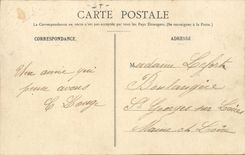 CARTE POSTALE
La Correspondance au recto n'est pas acceptée par tous les Pays Étrangers. (Se renseigner à la Poste.)
CORRESPONDANCE.
ADRESSE
Madame
Une amie qui
Boulangère
pense à vous
St Georges sur Loire
Maine et Loire